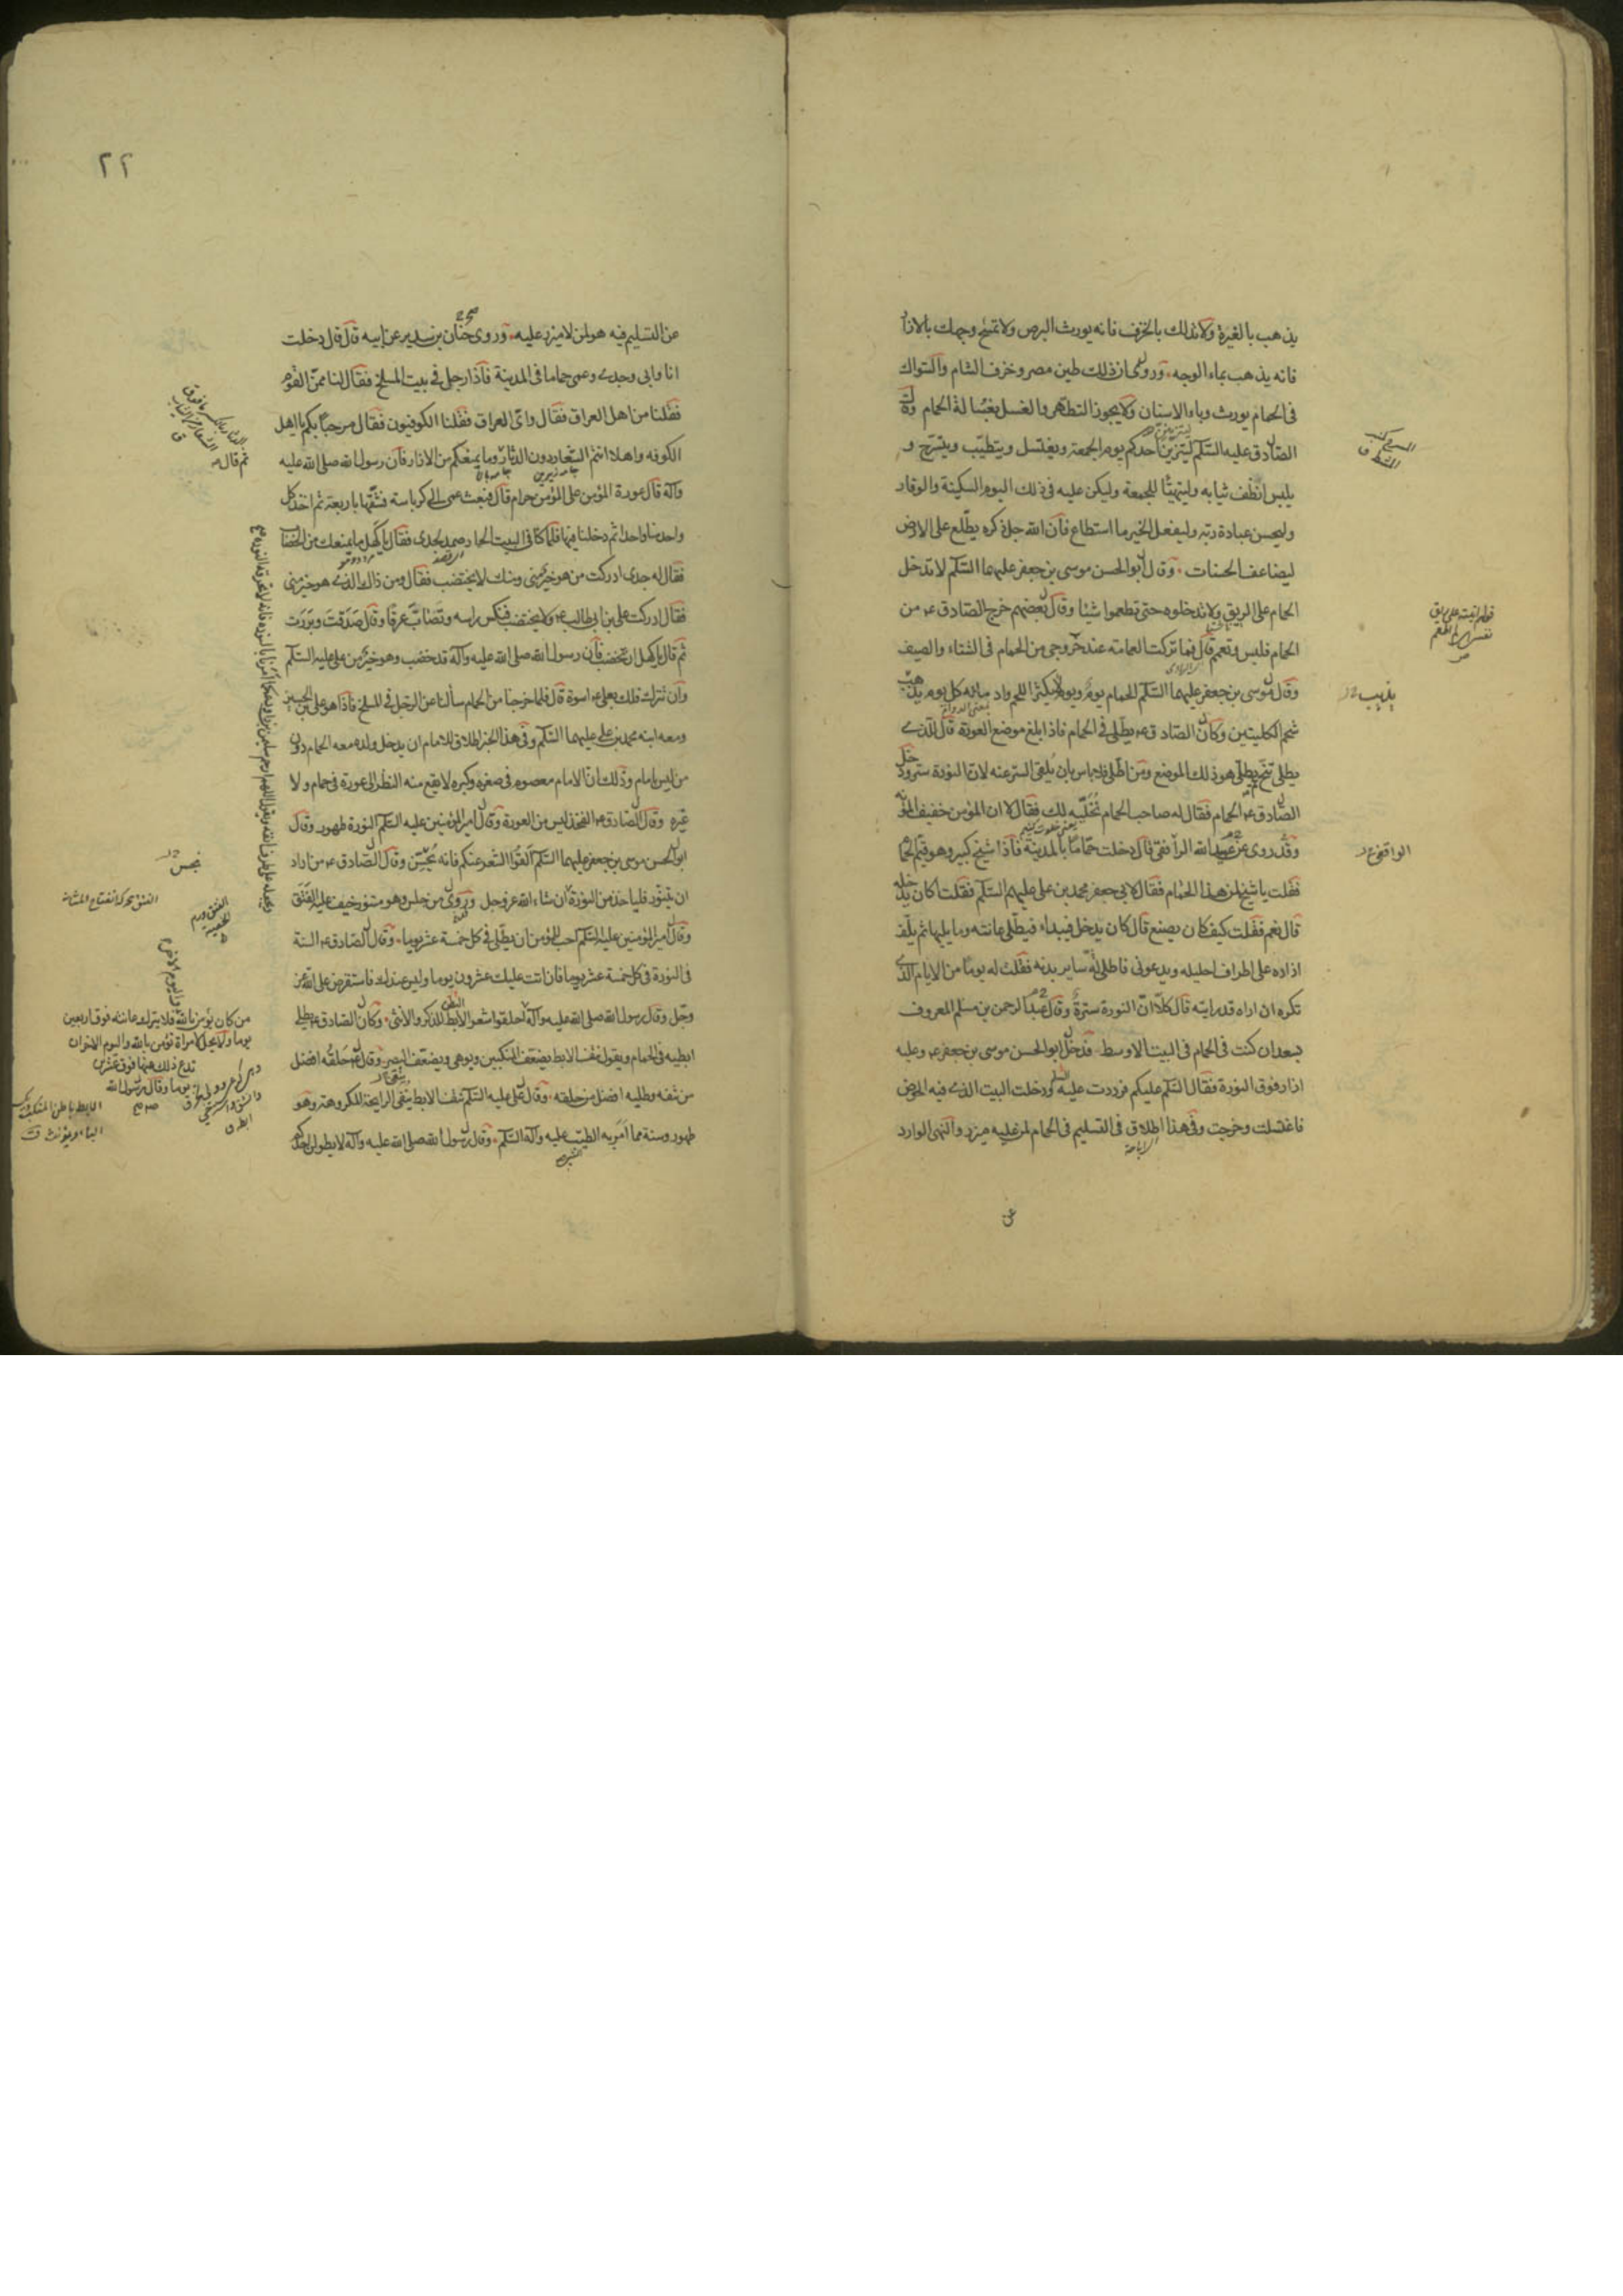 يذهب بالغيرة ولا تدلك بالخزف فانه يورث البرص ولا تمسح وجهك بالازار
فانه يذهب بماء الوجه وروى ان ذلك طين مصر وخزف الشام والسواك
فى الحمام يورث وباء الاسنان ولا يجوز التطهر والغسل بغسالة الحمام وقال
الصادق عليه السلم ليتزين احدكم يوم الجمعة ويغتسل ويتطيب ويتسرح و
يلبس انظف ثيابه وليتهيأ للجمعة وليكن عليه فى ذلك اليوم السكينة والوقار
وليحسن عبادة ربه وليفعل الخير ما استطاع فان الله جل ذكره يطلع على الارض
ليضاعف الحسنات وقال ابو الحسن موسى بن جعفر عليهما السلم لا تدخل
الحمام على الريق ولا تدخلوه حتى تطعموا شيئا وقال بعضهم خرج الصادق ع من
الحمام فلبس وتعمم قال فما تركت العمامة عند خروجى من الحمام فى الشتاء والصيف
وقال موسى بن جعفر عليهما السلم الحمام يوم ويوم لا يكثر اللحم وادمانه كل يوم يذهب
شحم الكليتين وكان الصادق ع يطلى فى الحمام فاذا بلغ موضع العورة قال للذى
يطلى تنح ثم يطلى هو ذلك الموضع ومن اطلى فلا باس بان يلقى الستر عنه لان النورة سترة ودخل
الصادق ع الحمام فقال له صاحب الحمام نخليه لك فقال لا ان المؤمن خفيف المؤنة
وقد روى عن عبيد الله الرافقى قال دخلت حماما بالمدينة فاذا شيخ كبير وهو قيم الحمام
فقلت يا شيخ لمن هذا الحمام فقال لابى جعفر محمد بن على عليهم السلم فقلت اكان يدخله
قال نعم فقلت كيف كان يصنع قال كان يدخل فيبداء فيطلى عانته وما يليها ثم يلف
ازاره على اطراف احليله ويدعونى فاطلى سائر بدنه فقلت له يوما من الايام الذى
تكره ان اراه قد رايته قال كلا ان النورة سترة وقال عبد الرحمن بن مسلم المعروف
بسعدان كنت فى الحمام فى البيت الاوسط فدخل ابو الحسن موسى بن جعفر ع وعليه
ازار فوق النورة فقال السلم عليكم فرددت عليه ودخلت البيت الذى فيه الحوض
فاغتسلت وخرجت وفى هذا اطلاق فى التسليم فى الحمام لمن عليه ميزر والنهى الوارد
يذهب
٢٢
عن التسليم فيه هو لمن لا ميزر عليه وروى حنان بن سدير عن ابيه قال قال دخلت
انا وابى وجدى وعمى حماما فى المدينة فاذا رجل فى بيت المسلخ فقال لنا ممن القوم
فقلنا من اهل العراق فقال واى العراق فقلنا الكوفيون فقال مرحبا بكم يا اهل
الكوفه واهلا انتم الشعار دون الدثار وما يمنعكم من الازار فان رسول الله صلى الله عليه
وآله قال عورة المؤمن على المؤمن حرام قال فبعث عمى الى كرباسة فشقها باربعة ثم اخذ كل
واحد منا واحدا ثم دخلنا فيها فلما كنا فى البيت الحار صمد لجدى فقال يا كهل ما يمنعك من الخضاب
فقال له جدى ادركت من هو خير منى ومنك لا يختضب فقال ومن ذاك الذى هو خير منى
فقال ادركت على بن ابى طالب ع ولا يختضب فنكس راسه وتصاب عرقا وقال صدقت وبررت
ثم قال يا كهل ان تختضب فان رسول الله صلى الله عليه وآله قد خضب وهو خير من على عليه السلم
وان تترك فلك بعلى ع اسوة قال فلما خرجنا من الحمام سألنا عن الرجل فى المسلخ فاذا هو على بن الحسين
ومعه ابنه محمد بن على عليهما السلم وفى هذا الخبر اطلاق للامام ان يدخل ولده معه الحمام دون
من ليس بامام وذلك ان الامام معصوم فى صغره وكبره لا يقع منه النظر الى عورة فى حمام ولا
غيره وقال الصادق ع الفخذ ليس من العورة وقال امير المؤمنين عليه السلم النورة طهور وقال
ابو الحسن موسى بن جعفر عليهما السلم القوا الشعر عنكم فانه يحسن وقال الصادق ع من اراد
ان يتنور فليأخذ من النورة ان شاء الله عز وجل وروى من جلس وهو متنور خيف عليه الفتق
وقال امير المؤمنين عليه السلم احب للمؤمن ان يطلى فى كل خمسة عشر يوما وقال الصادق ع السنة
فى النورة فى كل خمسة عشر يوما فان اتت عليك عشرون يوما وليس عندك فاستقرض على الله عز
وجل وقال رسول الله صلى الله عليه وآله احلقوا شعر الابط للذكر والانثى وكان الصادق ع يطلى
ابطيه فى الحمام ويقول نتف الابط يضعف المنكبين ويوهى ويضعف البصر وقال ع حلقه افضل
من نتفه وطليه افضل من حلقه وقال على عليه السلم نتف الابط ينفى الرايحة المكروهة وهو
طهور وسنة مما امر به الطيب عليه وآله السلم وقال رسول الله صلى الله عليه وآله لا يطولن احدكم
ثم قال
من كان يؤمن بالله فلا يترك عانته فوق اربعين
يوما ولا يحل لامراة تؤمن بالله واليوم الاخر ان
تدع ذلك منها فوق عشرين
يوما وقال رسول الله
واليوم الاخر